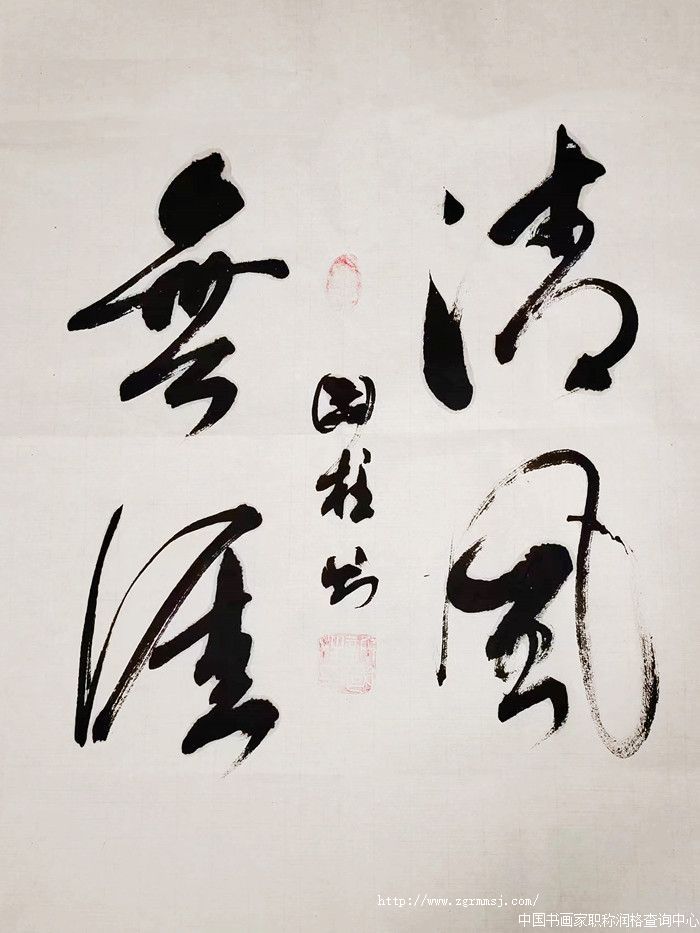 清風
無涯
国柱书
http://www.zgrmmsj.com/
中国书画家职称润格查询中心